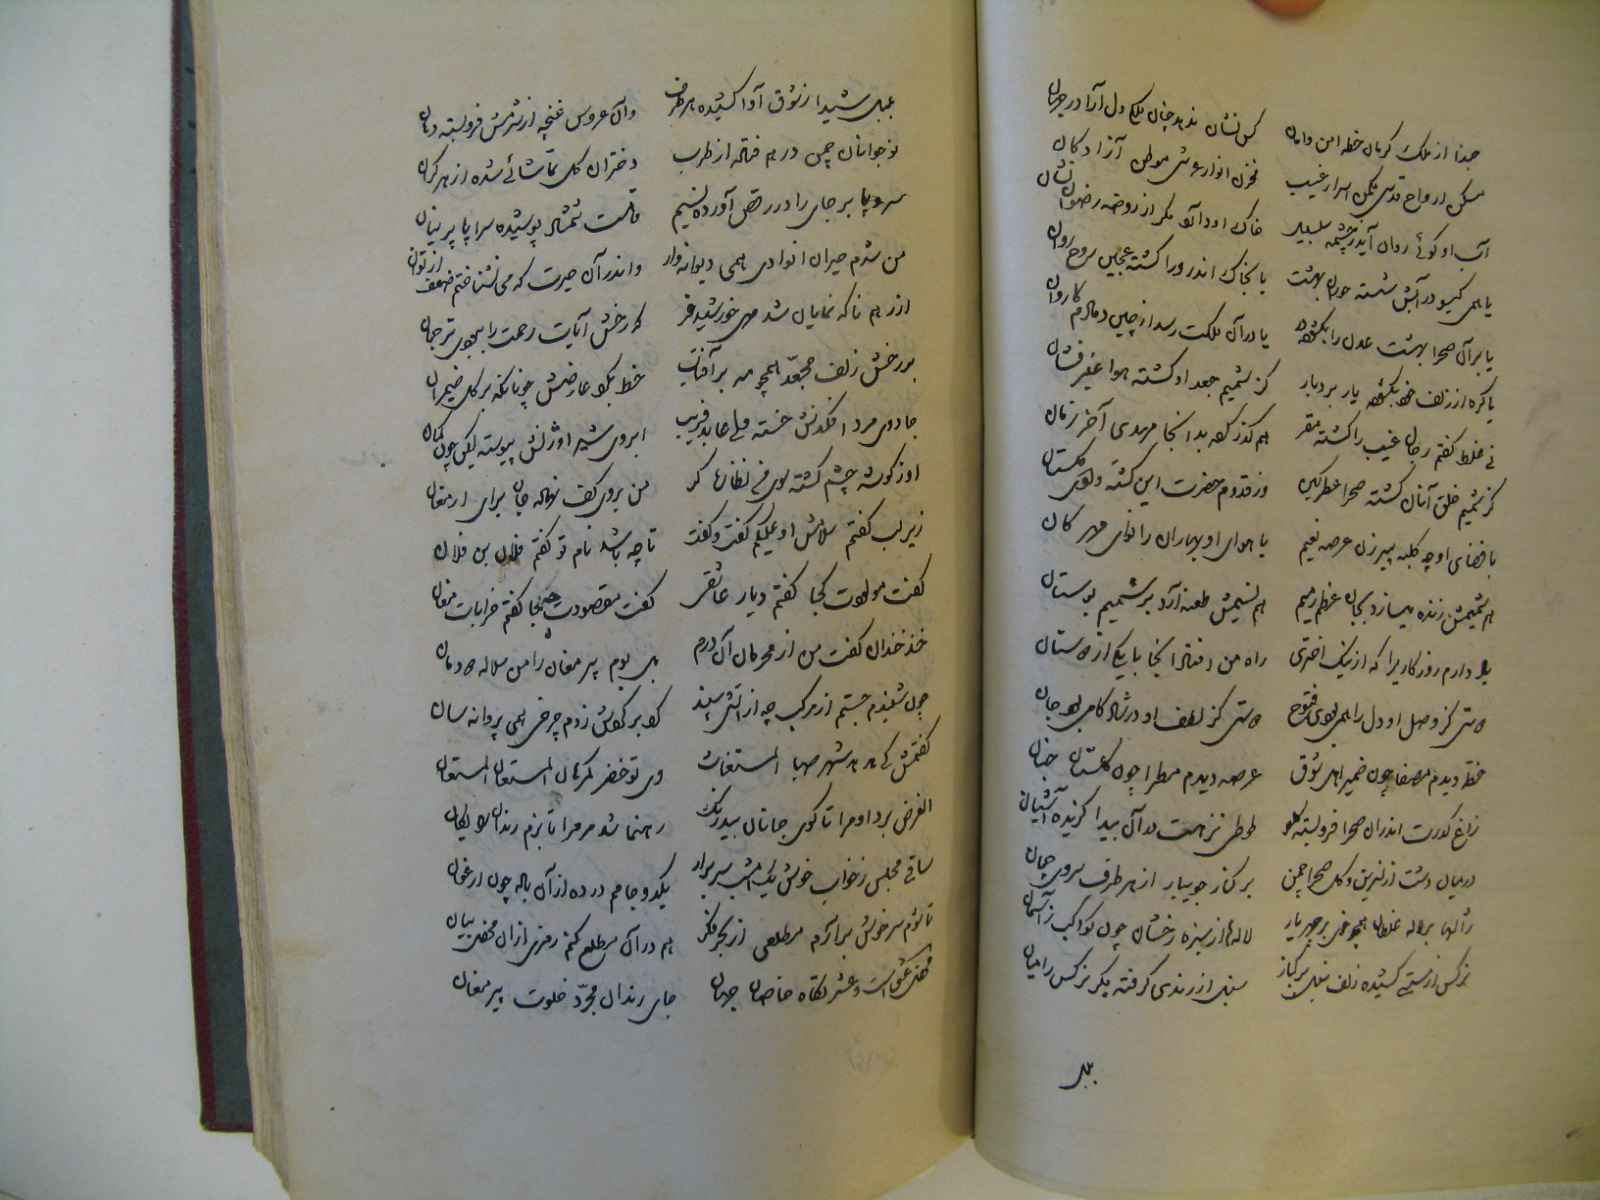 حبذا از ملک کرمان خطه امن و امان کس نشان ندهد چنان ملک دل آرا در جهان
مسکن ارواح قدسی مکمن اسرار غیب مخزن انوار عرشی موطن آزادگان
آب او گوئی روان آید ز چشمه سلسبیل خاک او دارد مگر از روضه رضوان نشان
یا همی گیسو در آبش شسته حوران بهشت یا بخاک اندر ورا گشته عجین روح روان
یا بر آن صحرا بهشت عدن را بگشوده یا در آن ملکت رسد از چین دمادم کاروان
یا گره از زلف خود بگشوده یار بردبار کز شمیم جعد او گشته هوا عنبرفشان
نی غلط گفتم رجال غیب را گشته مقر هم گذر کرده بدانجا مهدی آخر زمان
کز شمیم خلق آنان گشته صحرا عطرگین وز قدوم حضرت این گشته وادی گلستان
با فضای او چه کلبه پیرزن عرصه نعیم با هوای او بهاران را نوای مهرگان
هم شمیمش زنده میسازد بجان عظم رمیم هم نسیمش طعنه آرد بر شمیم بوستان
یاد دارم روزگاری را که از نیک اختری راه من افتاد آنجا با یکی از دوستان
دوستی کز وصل او دل را همی بودی فتوح دوستی کز لطف او در شادکامی بود جان
خطه دیدم مصفا چون ضمیر اهل ذوق عرصه دیدم مطرا چون گلستان جنان
زاغ کدورت اندران صحرا فروبسته گلو طوطی نزهت در آن بیدا گزیده آشیان
در میان دشت از نسرین و گل صحرا چمن بر کنار جویبار از هر طرف سروی چمان
ژالها بر لاله غلطان همچو خوی بر چهر یار لاله‌ها از سبزه رخشان چون کواکب ز آسمان
نرگس از مستی کشیده زلف سنبل بر کنار سنبل از رندی گرفته پیکر نرگس را میان
بلبل
بلبل شیدا ز شوق آوا کشیده هر طرف وآن عروس غنچه از شرمش فروبسته دهان
نوجوانان چمن درهم فتاده از طرب دختران گل تماشائی شده از هر کران
سرو پا بر جای را در رقص آورده نسیم قامت شمشاد پوشیده سراپا پرنیان
من شدم حیران آن وادی همی دیوانه‌وار واندر آن حیرت که می نشناختم ضعف از توان
از رهم ناگه نمایان شد مهی خورشید فر که رخش آیات رحمت را بدی ترجمان
بر رخش زلف مجعد همچو مه بر آفتاب خط بگرد عارضش چونانکه بر گل ضیمران
جادوی مرد افکنش خسته دلی عابد فریب ابروی شیر اوژنش پیوسته لیکن چون کمان
او ز گوشه چشم گشته سوی من نظاره گر من بروی کف نهاده جان برای ارمغان
زیر لب گفتم سلامش او علیکم گفت و گفت تا چه باشد نام تو گفتم فلان بن فلان
گفت مولدت کجا گفتم دیار عاشقی گفت مقصودت کجا گفتم خرابات مغان
خند خندان گفت من از محرمان آن درم بل بوم پیر مغان را من سلاله دودمان
چون شنیدم جستم از مرکب چه از آتش سپند گرد بر گردش زدم چرخی همی پروانه سان
گفتمش کای هدهد شهر صبا المستغاث وی تو خضر گمرهان المستعان المستعان
الغرض برد او مرا تا کوی جانان بیدرنگ رهنما شد مر مرا تا بزم رندان لامکان
ساقی مجلس ز خواب خوش یک امشب سر برآر یکدو جامم در ده از آن باده چون ارغوان
تا شوم سرخوش برآرم مطلعی از بحر فکر هم در آن مطلع کنم رمزی از آن محضر بیان
محفل عشق است و عشرتگاه خاصان جهان جای رندان مجرد خلوت پیر مغان